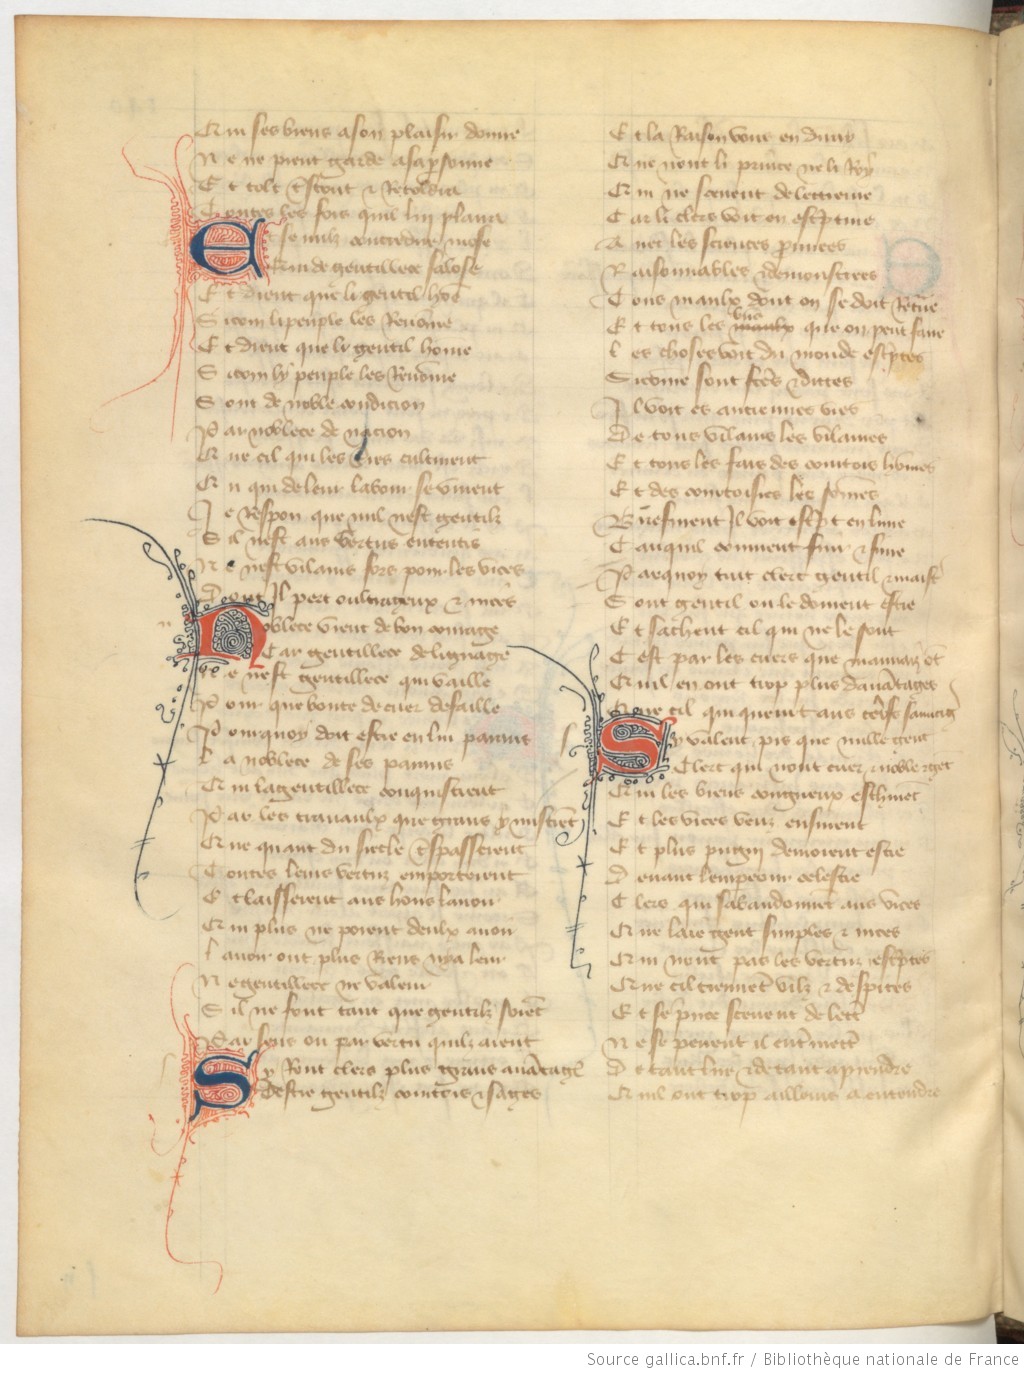 Qui ses biens a son plaisir donne
Ne ne prent garde a sa psonne
Et tolt et
Toutes les fois quil lui plaira
Et se nulz contredire mose
Qui de gentillece salose
Et dient que li gentil hoe
Si com li peuple les Renome
Et dient que li gentil home
Si com ly peuple les Renome
Sont de noble condicion
Par noblece de nacion
Que cil qui les t'res cultivent
Ou qui de leur labour se vivent
Je Respon que nul nest gentilz
Sil nest aus vertus ententis
Ne nest vilains fors pour les vices
Dont Il pert oultrageux et nices
Noblece vient de bon courage
Car gentillece de lignage
Ne nest gentillece qui vaille
Pour que bonte de cuer defaille
Pourquoy doit estre en lui parans
La noblece de ses parans
Qui la gentillece conquistrent
Par les travaulx que grans y mistrent
Que quant du siecle t'spasserent
Toutes leurs vertuz emporterent
Et laisserent aus hoirs lavoir
Qui plus ne porent deulx avoir
Lavoir ont plus Riens ny a leur
Ne gentillece ne valeur
Sil ne font tant que gentilz soient
Par sens ou par vertu quilz aient
Sy Ront clers plus grans avantages
Destre gentilz courtois et sages
Et la Raison vous en diray
Que nont li prince ne li Roy
Qui ne scevent de lettreure
Car li clers voit en escripture
Avec les sciences prouvees
Raisonnables et demonstrees
Tous maulx dont on se doit Retraire
Et tous les maulx biens que on peut faire
Les choses voit du monde escriptes
Si come sont fctes et dittes
Il voit es anciennes vies
De tous vilains les vilanies
Et tous les fais des courtois homes
Et des courtoisies les somes
Briefment Il voit escript en livre
Tan quil convient fuir et suivre
Parquoy tuit clerc gentil et maist'
Sont gentil ou le doivent estre
Et sachent cil qui ne le sont
Cest par les cuers que mauvaiz ont
Quil en ont trop plus davantages
Que cil qui queurent aus cerfs sauvages
Sy valent pis que nulle gent
Clerc qui nont cuer noble et gent
Qui les biens congneuz eschivent
Et les vices veuz ensuivent
Et plus pugny devroient estre
Devant lempereur celestre
Clers qui sabandonnent aus vices
Que laie gent simples et nices
Qui nont pas les vertuz escriptes
Que cil tiennent vilz et despites
Et se prince scevent de lettre
Ne se pevent il entremettre
De tant lire et de tant aprendre
Quil ont trop ailleurs a entendre
Source gallica.bnf.fr / Bibliothèque nationale de France